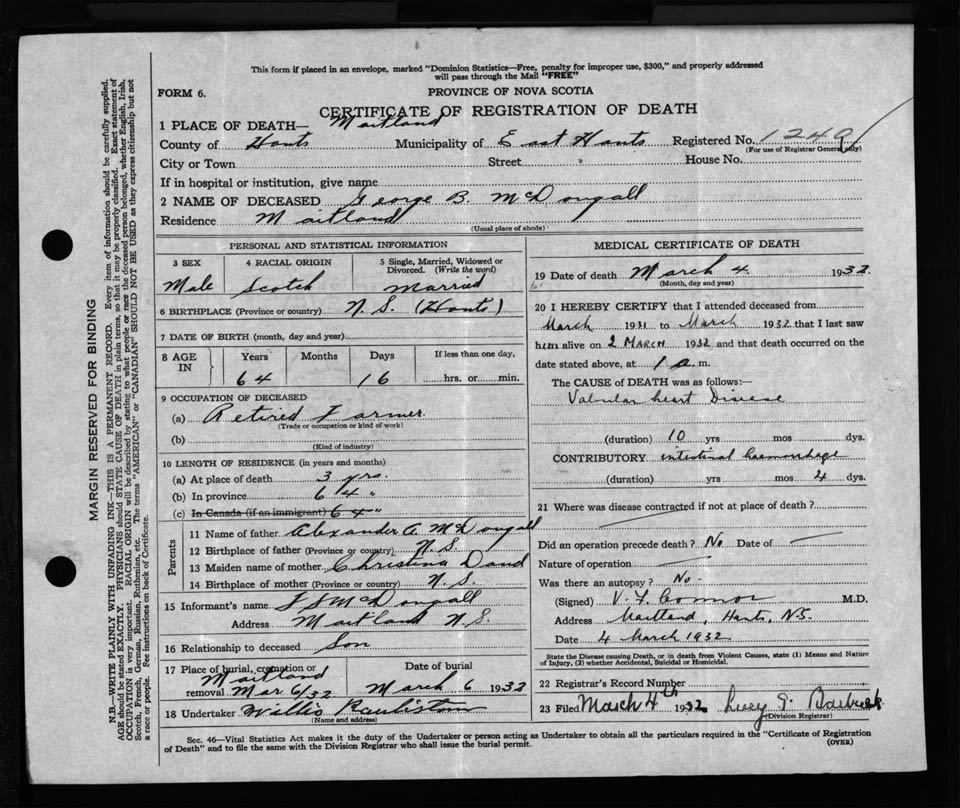 This form if placed in an envelope, marked "Dominion Statistics—Free, penalty for improper use, $300," and properly addressed
will pass through the Mail "FREE"
FORM 6.
PROVINCE OF NOVA SCOTIA
CERTIFICATE OF REGISTRATION OF DEATH
1 PLACE OF DEATH— Maitland
County of Hants Municipality of East Hants Registered No. 1249
(For use of Registrar General only)
City or Town Street House No.
If in hospital or institution, give name
2 NAME OF DECEASED George B. McDougall
Residence Maitland
(Usual place of abode)
PERSONAL AND STATISTICAL INFORMATION
3 SEX 4 RACIAL ORIGIN 5 Single, Married, Widowed or
Divorced. (Write the word)
Male Scotch Married
6 BIRTHPLACE (Province or country) N. S. (Hants)
7 DATE OF BIRTH (month, day and year)
8 AGE IN Years Months Days If less than one day,
64 16 hrs. or min.
9 OCCUPATION OF DECEASED
(a) Retired Farmer
(Trade or occupation or kind of work)
(b)
(Kind of industry)
10 LENGTH OF RESIDENCE (in years and months)
(a) At place of death 3 yrs.
(b) In province 64 "
(c) In Canada (if an immigrant) 64 "
Parents
11 Name of father Alexander A. McDougall
12 Birthplace of father (Province or country) N. S.
13 Maiden name of mother Christina
14 Birthplace of mother (Province or country) N. S.
15 Informant's name McDougall
Address Maitland N. S.
16 Relationship to deceased Son
17 Place of burial, cremation or
removal Maitland Mar 6/32
Date of burial
March 6 1932
18 Undertaker Willis
(Name and address)
MEDICAL CERTIFICATE OF DEATH
19 Date of death March 4. 1932.
(Month, day and year)
20 I HEREBY CERTIFY that I attended deceased from
March 1931 to March 1932 that I last saw
him alive on 2 March 1932 and that death occurred on the
date stated above, at 1 a.m.
The CAUSE OF DEATH was as follows:—
Valvular heart Disease
(duration) 10 yrs mos dys.
CONTRIBUTORY intestinal haemorrhage
(duration) yrs mos 4 dys.
21 Where was disease contracted if not at place of death?
Did an operation precede death? No Date of
Nature of operation
Was there an autopsy? No.
(Signed) V. F. Connor M.D.
Address Maitland, Hants, N.S.
Date 4 March 1932
State the Disease causing Death, or in death from Violent Causes, state (1) Means and Nature
of Injury, (2) whether Accidental, Suicidal or Homicidal.
22 Registrar's Record Number
23 Filed March 4th 1932
(Division Registrar)
Sec. 46—Vital Statistics Act makes it the duty of the Undertaker or person acting as Undertaker to obtain all the particulars required in the "Certificate of Registration
of Death" and to file the same with the Division Registrar who shall issue the burial permit.
(OVER)
MARGIN RESERVED FOR BINDING
N.B.—WRITE PLAINLY WITH UNFADING INK—THIS IS A PERMANENT RECORD. Every item of information should be carefully supplied.
AGE should be stated EXACTLY. PHYSICIANS should STATE CAUSE OF DEATH in plain terms, so that it may be properly classified. Exact statement of
OCCUPATION is very important. RACIAL ORIGIN will be described by stating to what people or race the deceased person belonged, whether English, Irish,
Scotch, French, German, Russian, Ruthenian, etc. The terms "AMERICAN" or "CANADIAN" SHOULD NOT BE USED as they express citizenship but not
a race or people. See instructions on back of Certificate.